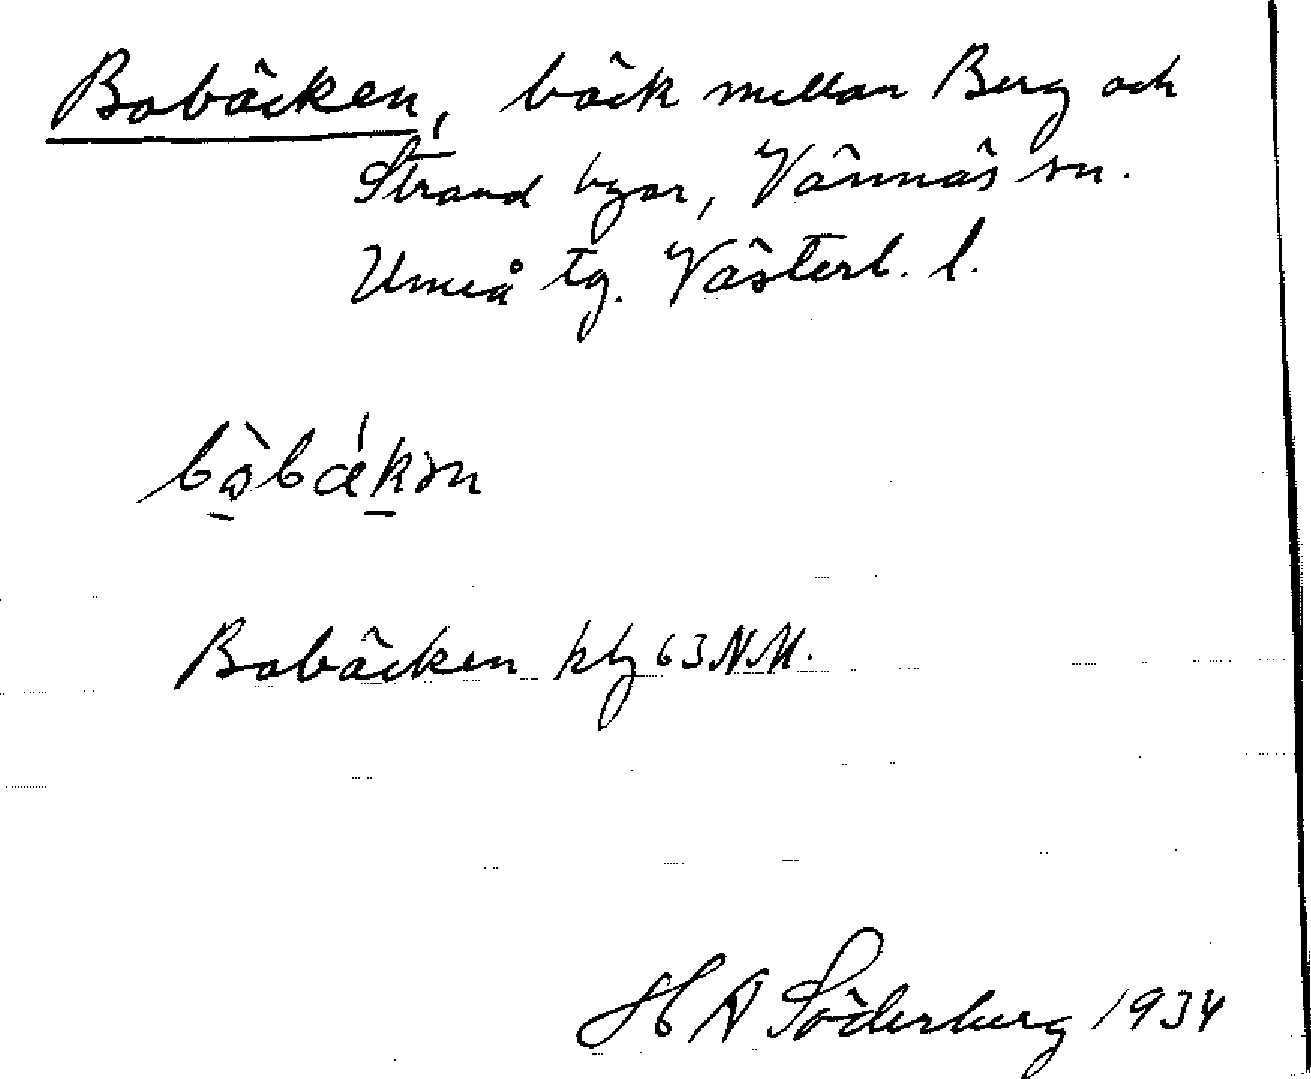 Bobäcken, bäck mellan Berg och
Strand byar, Vännäs sn.
Umeå tg. Västerb. l.
Bobäcken kbl 63 NM.
H A Söderberg 1934